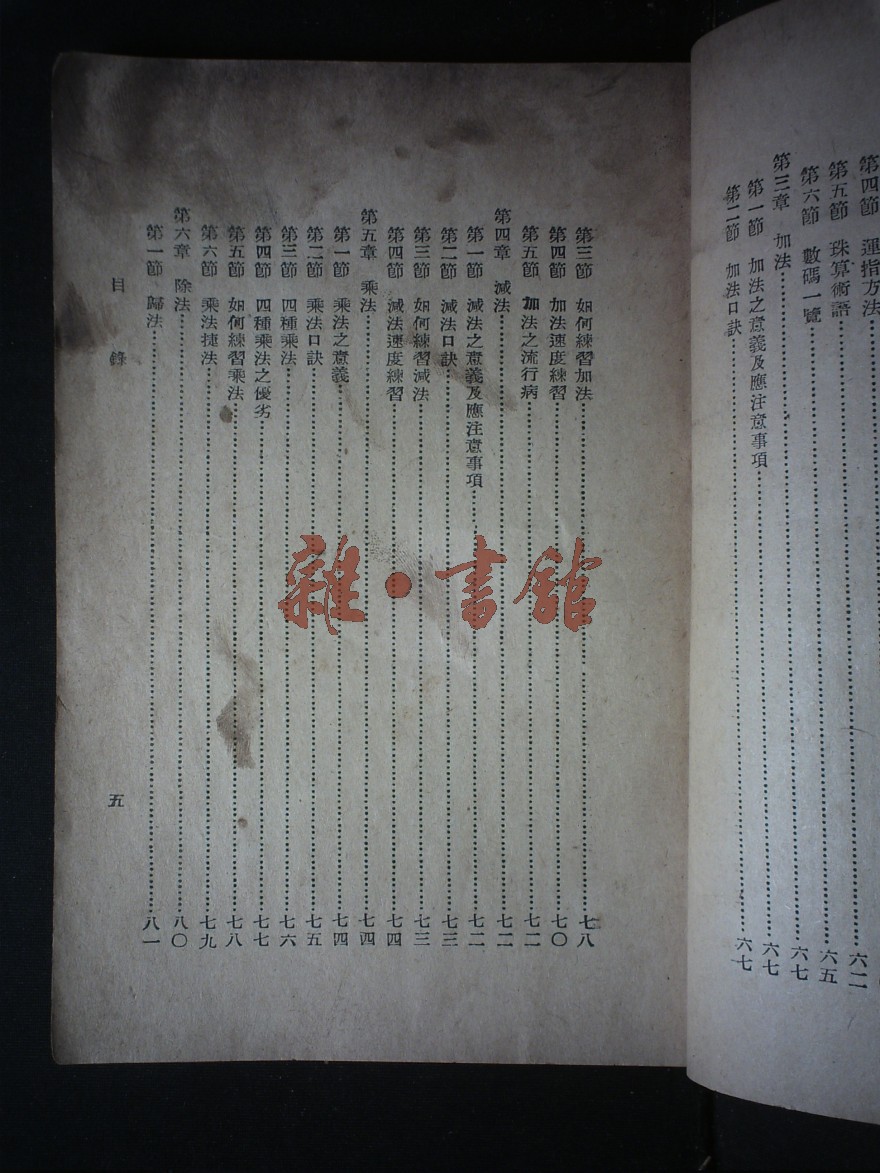 第四節 運指方法……六二
第五節 珠算術語……六五
第六節 數碼一覽……六七
第三章 加法……六七
第一節 加法之意義及應注意事項……六七
第二節 加法口訣……六七
第三節 如何練習加法……七八
第四節 加法速度練習……七〇
第五節 加法之流行病……七二
第四章 減法……七二
第一節 減法之意義及應注意事項……七二
第二節 減法口訣……七三
第三節 如何練習減法……七三
第四節 減法速度練習……七四
第五章 乘法……七四
第一節 乘法之意義……七四
第二節 乘法口訣……七五
第三節 四種乘法……七六
第四節 四種乘法之優劣……七七
第五節 如何練習乘法……七八
第六節 乘法捷法……七九
第六章 除法……八〇
第一節 歸法……八一
目錄
五
雜·書館